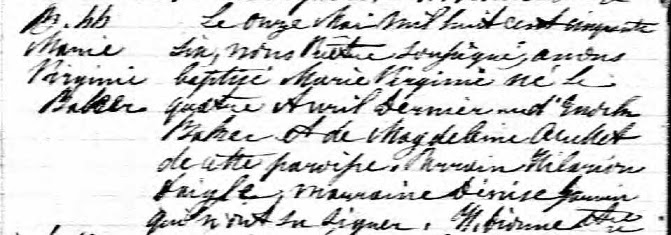 B. 66
Marie
Virginie
Baker
Le onze Mai mil huit cent cinquante
six, nous Prêtre soussigné, avons
baptisé Marie Virginie né le
quatre Avril dernier d'Enoch
Baker et de Magdeleine Ouellet
de cette paroisse. Parrain Hilarion
Daigle, marraine Denise
qui n'ont su signer. Ptre